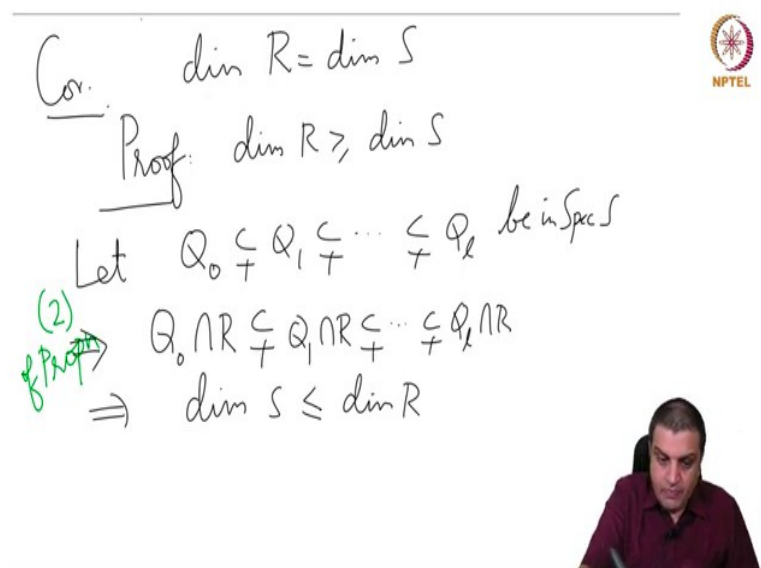 Cor. dim R = dim S
Proof: dim R ≥ dim S
Let Q₀ ⊊ Q₁ ⊊ ⋯ ⊊ Qₗ be in Spec S
(2) of Propn ⇒ Q₀ ∩ R ⊊ Q₁ ∩ R ⊊ ⋯ ⊊ Qₗ ∩ R
⇒ dim S ≤ dim R
NPTEL